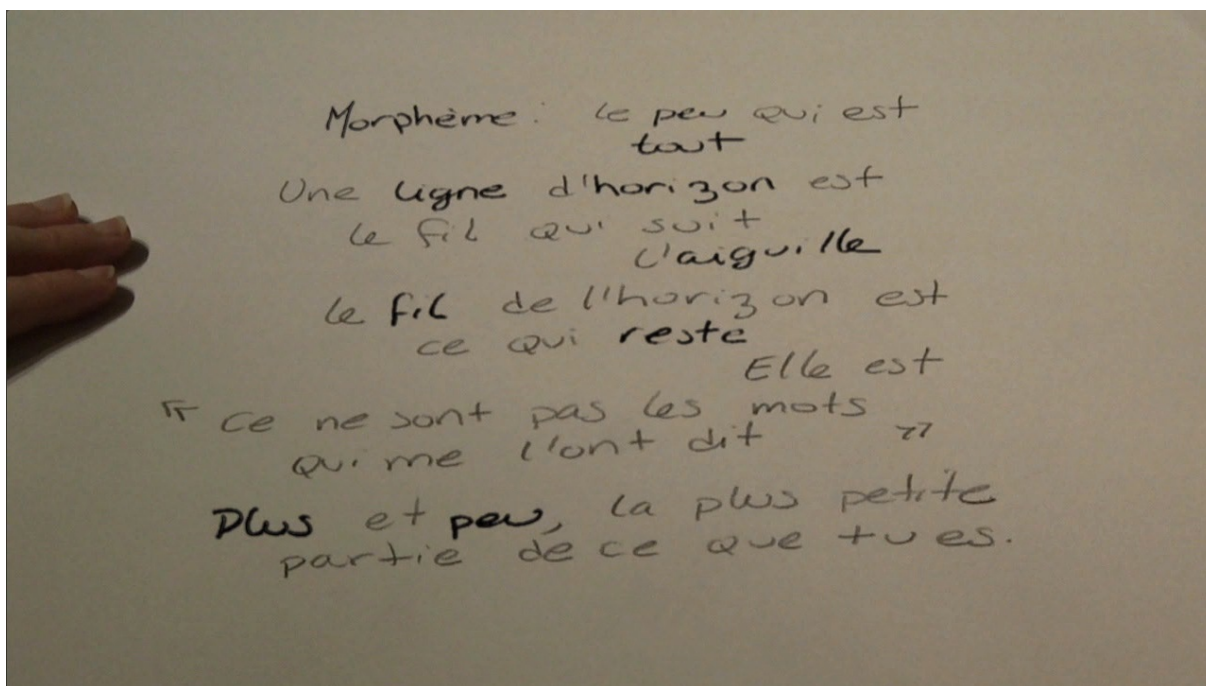 Morphème : le peu qui est
tout
Une ligne d'horizon est
le fil qui suit
l'aiguille
le fil de l'horizon est
ce qui reste
Elle est
" ce ne sont pas les mots
qui me l'ont dit "
Plus et peu, la plus petite
partie de ce que tu es.